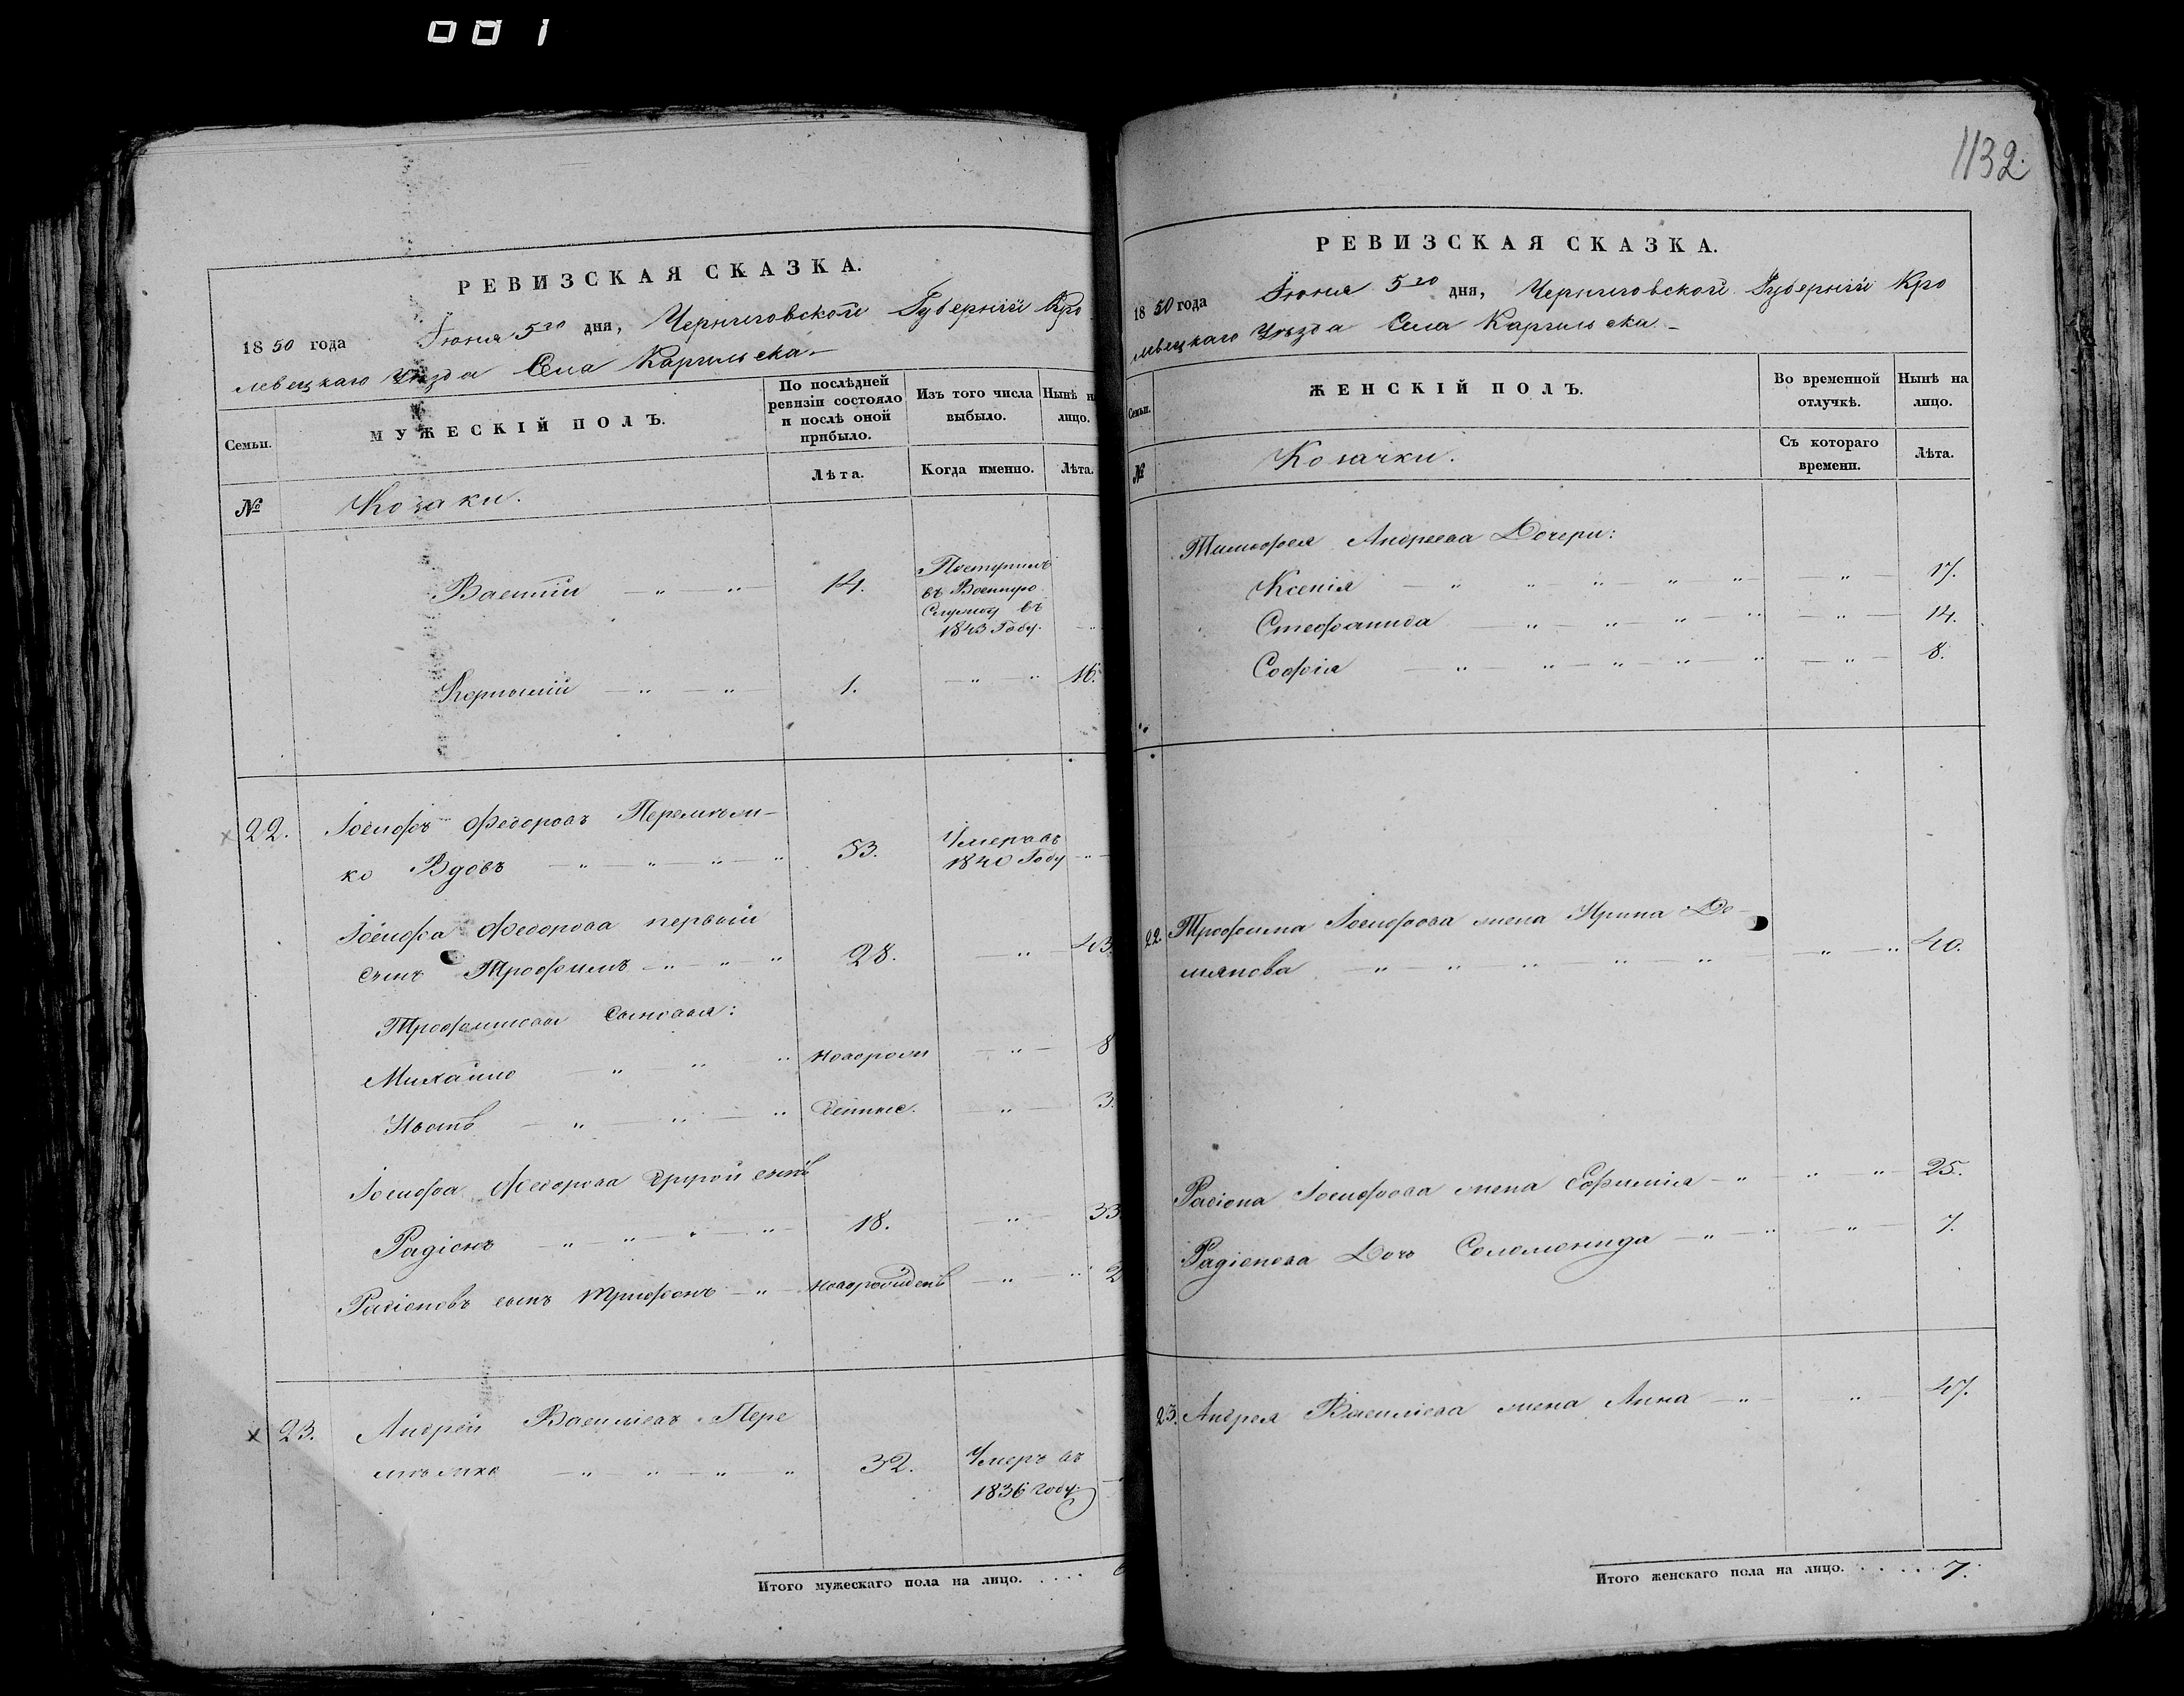 001
РЕВИЗСКАЯ СКАЗКА.
1850 года Іюня 5го дня, Черниговской Губерніи Кро
левецкаго Уѣзда Села Каргильска
Семьи.
МУЖЕСКІЙ ПОЛЪ.
По послѣдней ревизіи состояло и послѣ оной прибыло.
Изъ того числа выбыло.
Нынѣ н
лицо.
Лѣта.
Когда именно.
Лѣта.
№
Козаки.
Василій 14. Поступилъ
въ Военную
Службу въ
1843 Году.
Корнилій 1. 16.
22. Іосифъ Федоровъ Перемѣтъ-
ко Вдовъ 53. Умеръ въ
1840 Году
Іосифа Федорова первый
сынъ Трофимъ 28. 43.
Трофимовы сыновья:
Михайло новорож 8
Игнатъ денные. 3.
Іосифа Федорова другой сынъ
Радіонъ 18. 33
Радіоновъ сынъ Трифонъ новорожденъ 2
23. Андрей Васильевъ Пере
32. Умеръ въ
1836 году
Итого мужескаго пола на лицо.
1132.
РЕВИЗСКАЯ СКАЗКА.
1850 года Іюня 5го дня, Черниговской Губерніи Кро
левецкаго Уѣзда Села Каргильска
Семьи.
ЖЕНСКІЙ ПОЛЪ.
Во временной отлучкѣ.
Нынѣ на лицо.
№
Козачки.
Съ котораго времени.
Лѣта.
Тимофея Андреева Дочери:
Ксенія 17.
Стефанида 14.
Софія 8.
22. Трофима Іосифова жена Ирина До
мянова 40.
Радіона Іосифова жена Ефимія 25.
Радіонова Дочь Соломонида 7.
23. Андрея Васильева жена Анна 47.
Итого женскаго пола на лицо. 7.